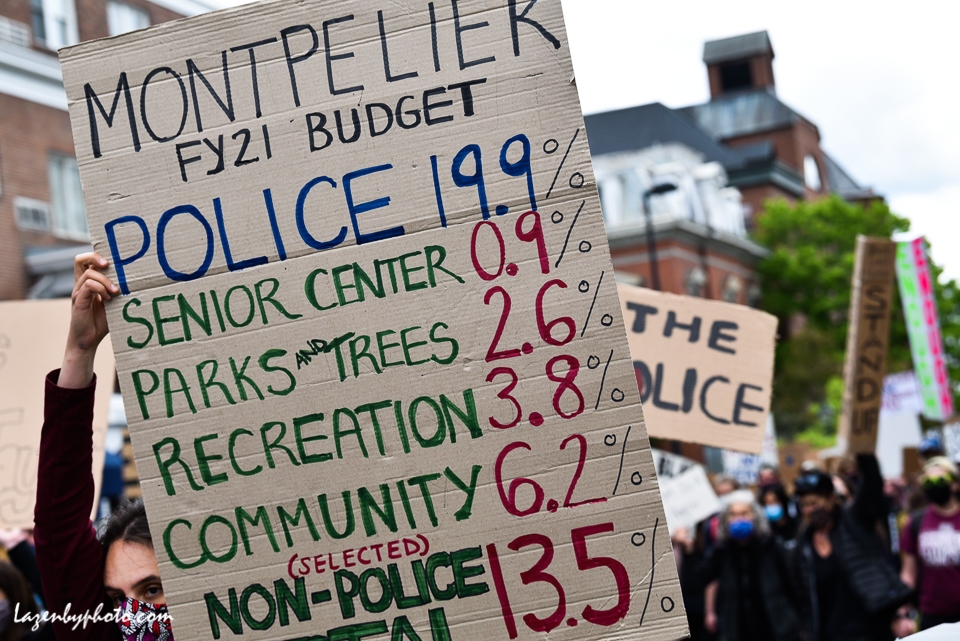 MONTPELIER
FY21 BUDGET
POLICE 19.9%
SENIOR CENTER 0.9%
PARKS AND TREES 2.6%
RECREATION 3.8%
COMMUNITY 6.2%
(SELECTED)
NON-POLICE 13.5%
THE
POLICE
STAND
Lazenbyphoto.com